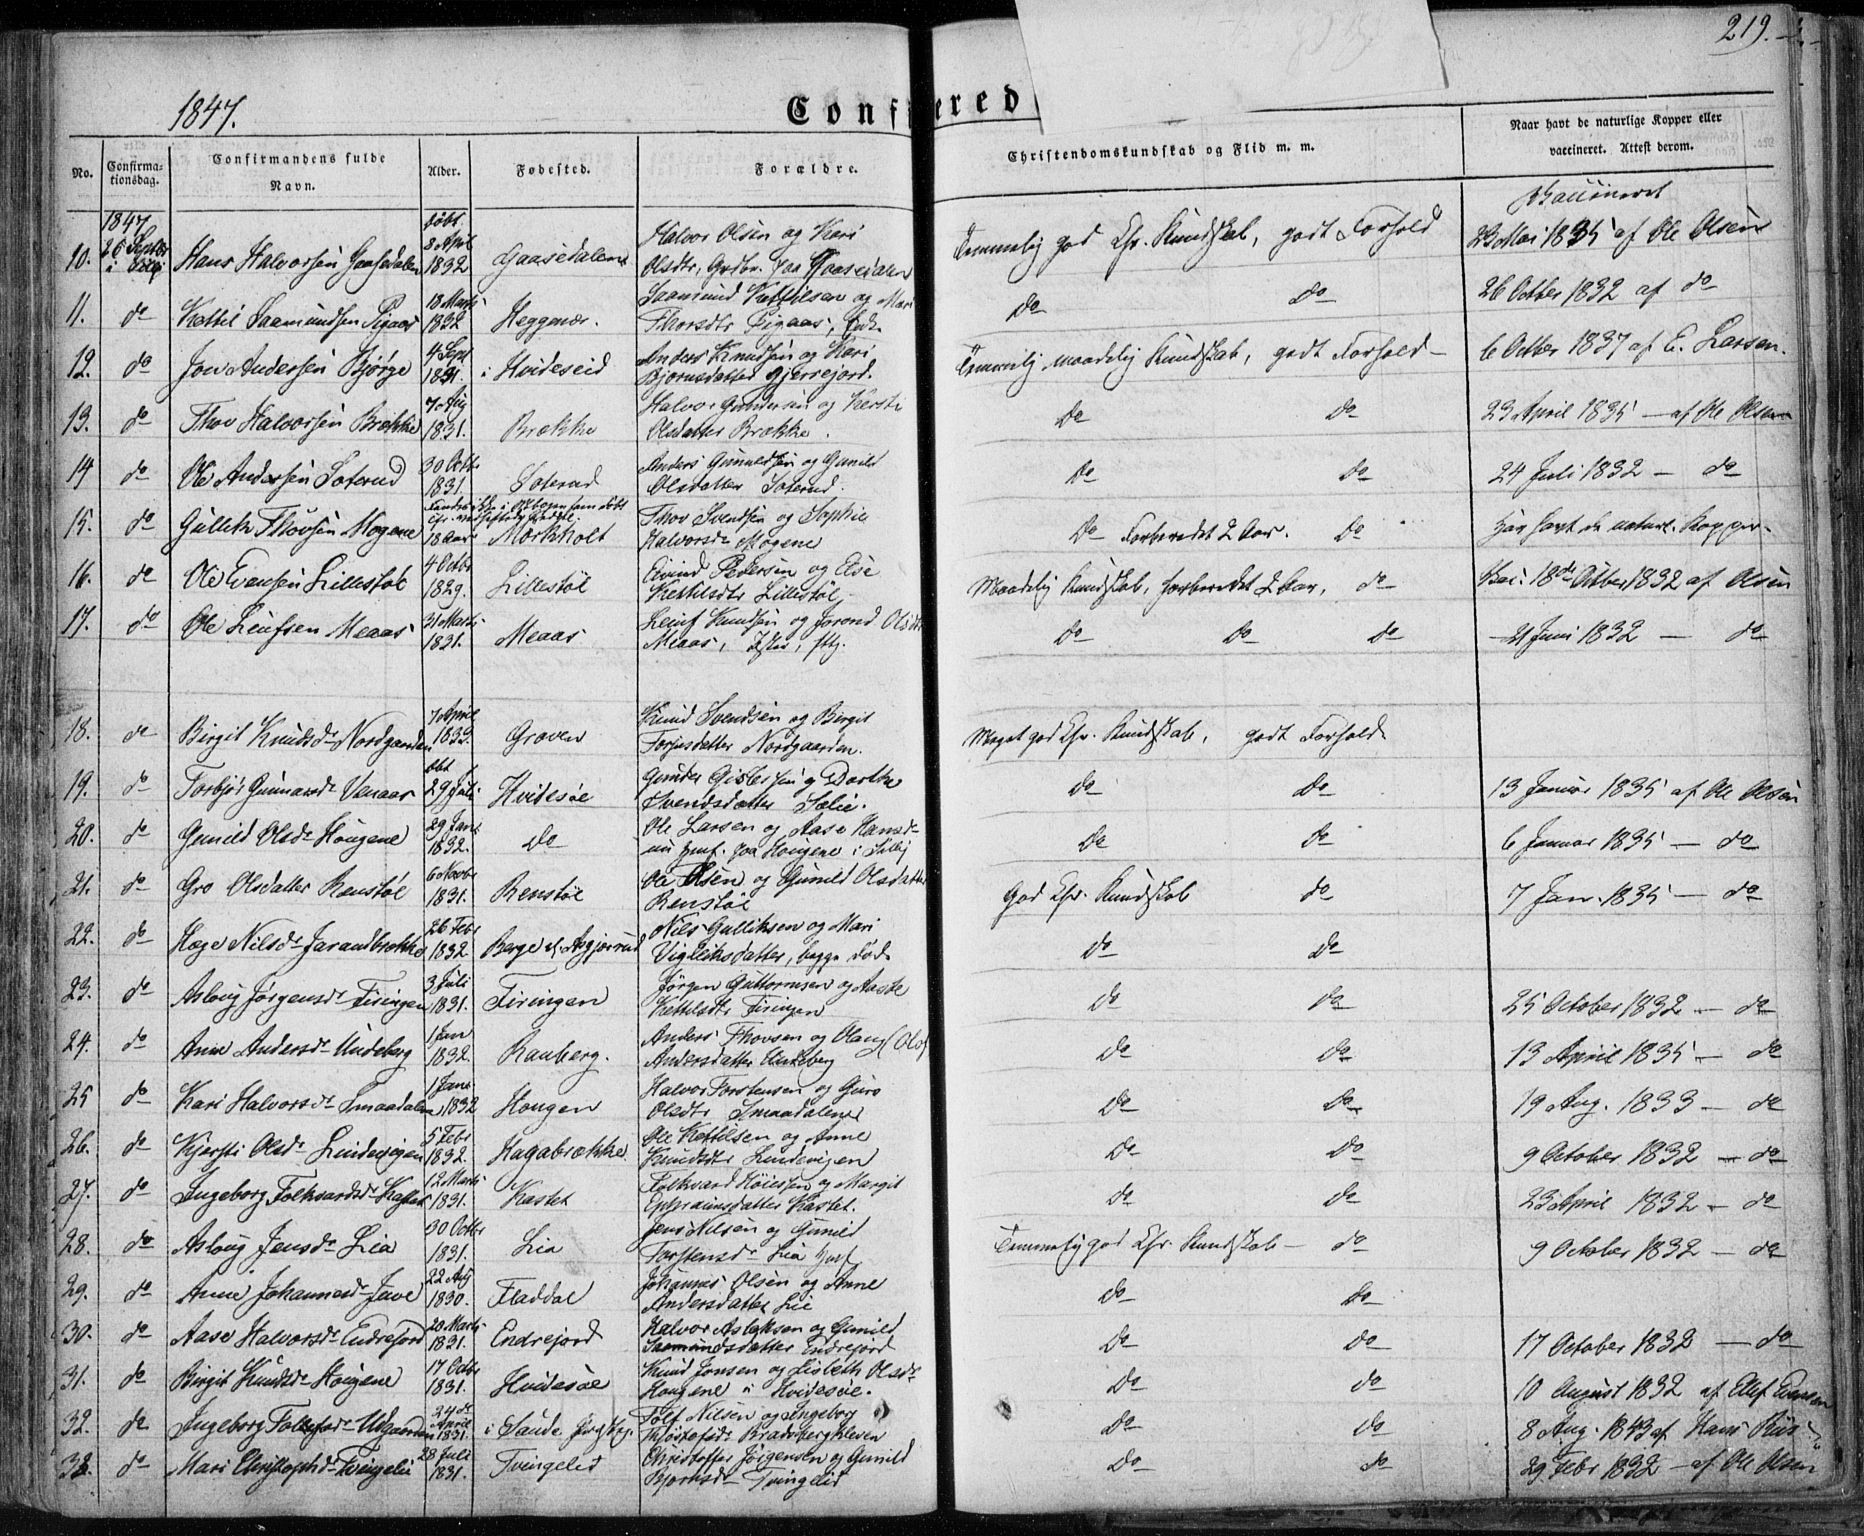 219.
1847.
Confirmerede
No.
Confirma-
tionsdag.
Confirmandens fulde
Navn.
Alder.
Fødested.
Forældre.
Christendomskundskab og Flid m. m.
Naar havt de naturlige Kopper eller
vaccineret. Attest derom.
1847 født Vaccineret
10. 26 Septbr i Hans Halvorsen Gaasedalen 8 April 1832 Gaasedalen Halvor Olsen og Kari Olsdtr, paa Gaasedalen Temmelig god Chr. Kundskab, godt Forhold 23 Mai 1835 af Ole Olsen
11. do Kettil Saamundsen Pigaas 18 Marts 1832 Heggenær. Saamund Kettilsen og Mari Thorsdtr Pigaas, do do 26 Octber 1832 af do
12. do Jon Andersen Bjørge 4 Sept 1831. i Hvideseid Anders Knudsen og Kari Bjornsdatter Gjerrejord. Temmelig maadelig Kundskab, godt Forhold 6 Octber 1837 af E. Larsen.
13. do Thov Halvorsen Brække 7 Aug 1831. Brække Halvor Gundersen og Kersti Olsdatter Brække. do do 23 April 1835 af Ole Olsen
14 do Ole Andersen Soterud 30 Octbr 1831. Soterud Anders Gunuldsen og Gunild Olsdatter Soterud. do do 24 Juli 1832 — do
15. do Gullek Thovsen Mogene 18 Aar Morkholt Thov Svendsen og Sophie Halvorsdr Mogene do Forberedt 2 Aar. do Har havt de naturl. Kopper.
16. do Ole Evensen Lillestøl 4 Octbr 1829. Lillestøl Eivind Pedersen og Else Kettilsdtr Lillestøl Maadelig Kundskab, forberedt 2 Aar, do Vac. 18de Octber 1832 af Olsen
17. do Ole Leufsen Meaas 31 Marts 1831. Meaas Leuf Knudsen og Jorond Olsdtr Meaas, do do do 21 Juni 1832 — do
18. do Birgit Knudsdr Nordgaarden 7 April 1832. Groven Knud Svendsen og Bergit Torjusdatter Nordgaarden. Meget god Chr. Kundskab, godt Forhold
19. do Torbjør Gunnarsdr Vaaaer 29 Juli Hvidesøe Gunder Gislesen og Dorthe Svendsdatter Sølie. do do 13 Januar 1835 af Ole Olsen
20. do Gunild Olsdr Hougene 29 Jan 1832. Do Ole Larsen og Aase Hansdr paa Hougene i do do 6 Januar 1835 — do
21. do Gro Olsdatter Renstøl 6 Novbr 1831. Renstøl Ole Olsen og Gunild Olsdatter Renstøl God Chr. Kundskab do 7 Jan. 1835 — do
22. do Hæge Nilsdr Jarandbrække 26 Febr 1832 Berge Nils Gulliksen og Mari Vigleiksdatter, begge død do do
23. do Aslaug Jørgensdr Firingen 3 Juli 1831. Firingen Jørgen Guttormsen og Aaste Kettilsdtr Firingen do do 25 October 1832 — do
24. do Anne Andersdr Undeberg 1 Jan 1832. Rauberg. Anders Thovsen og Olaug Andersdatter Undeberg do do 13 April 1835 — do
25 do Kari Halvorsdr Smaadalene 1 Jan 1832 Hougen Halvor Torstensen og Guro Olsdtr Smaadalene do do 19 Aug. 1833 — do
26. do Kjersti Olsdr Lindevigen 5 Febr 1832. Hagabrække. Ole Kettilsen og Anne Knudsdtr Lindevigen do do 9 October 1832 — do
27. do Ingeborg Folkvardsdr Kastet 12 Marts 1831. Kastet Folkvard Høiesen og Margit Ephraimsdatter Kastet. do do 23 April 1832 — do
28. do Aslaug Jensdr Lia 30 Octbr 1831. Lia Jens Nilsen og Gunild Torstensdr Lia Temmelig god Chr. Kundskab — do 9 October 1832 — do
29. do Anne Johannesdr Juve 22 Aug 1830. Fladdal Johannes Olsen og Anne Andersdatter Lie do do
30. do Aase Halvorsdr Endrejord 20 Marts 1831. Endrejord Halvor Aslaksen og Gunild Saamundsdatter Endrejord do do 17 October 1832 — do
31. do Birgit Knudsdr Hougene 17 Octbr 1831. Hvidesøe Knud Jonsen og Lisbeth Olsdr Hougene i Hvidesøe. do do 10 August 1832 af Ellef Evensen
32. do Ingeborg Tollefsdr Udgaarden 24de April 1831. i Saude Tolf Nilsen og Ingeborg Thostofsdr Bradsbergkleven do do 8 Aug. 1843 af Hans Riis
33. do Mari Christophsdr Tveingelie 28 Juli 1831. Tvingelid Christoffer Jørgensen og Gunild Bjornsdr Tvingelid do do 29 Febr 1832 — af Ole Olsen